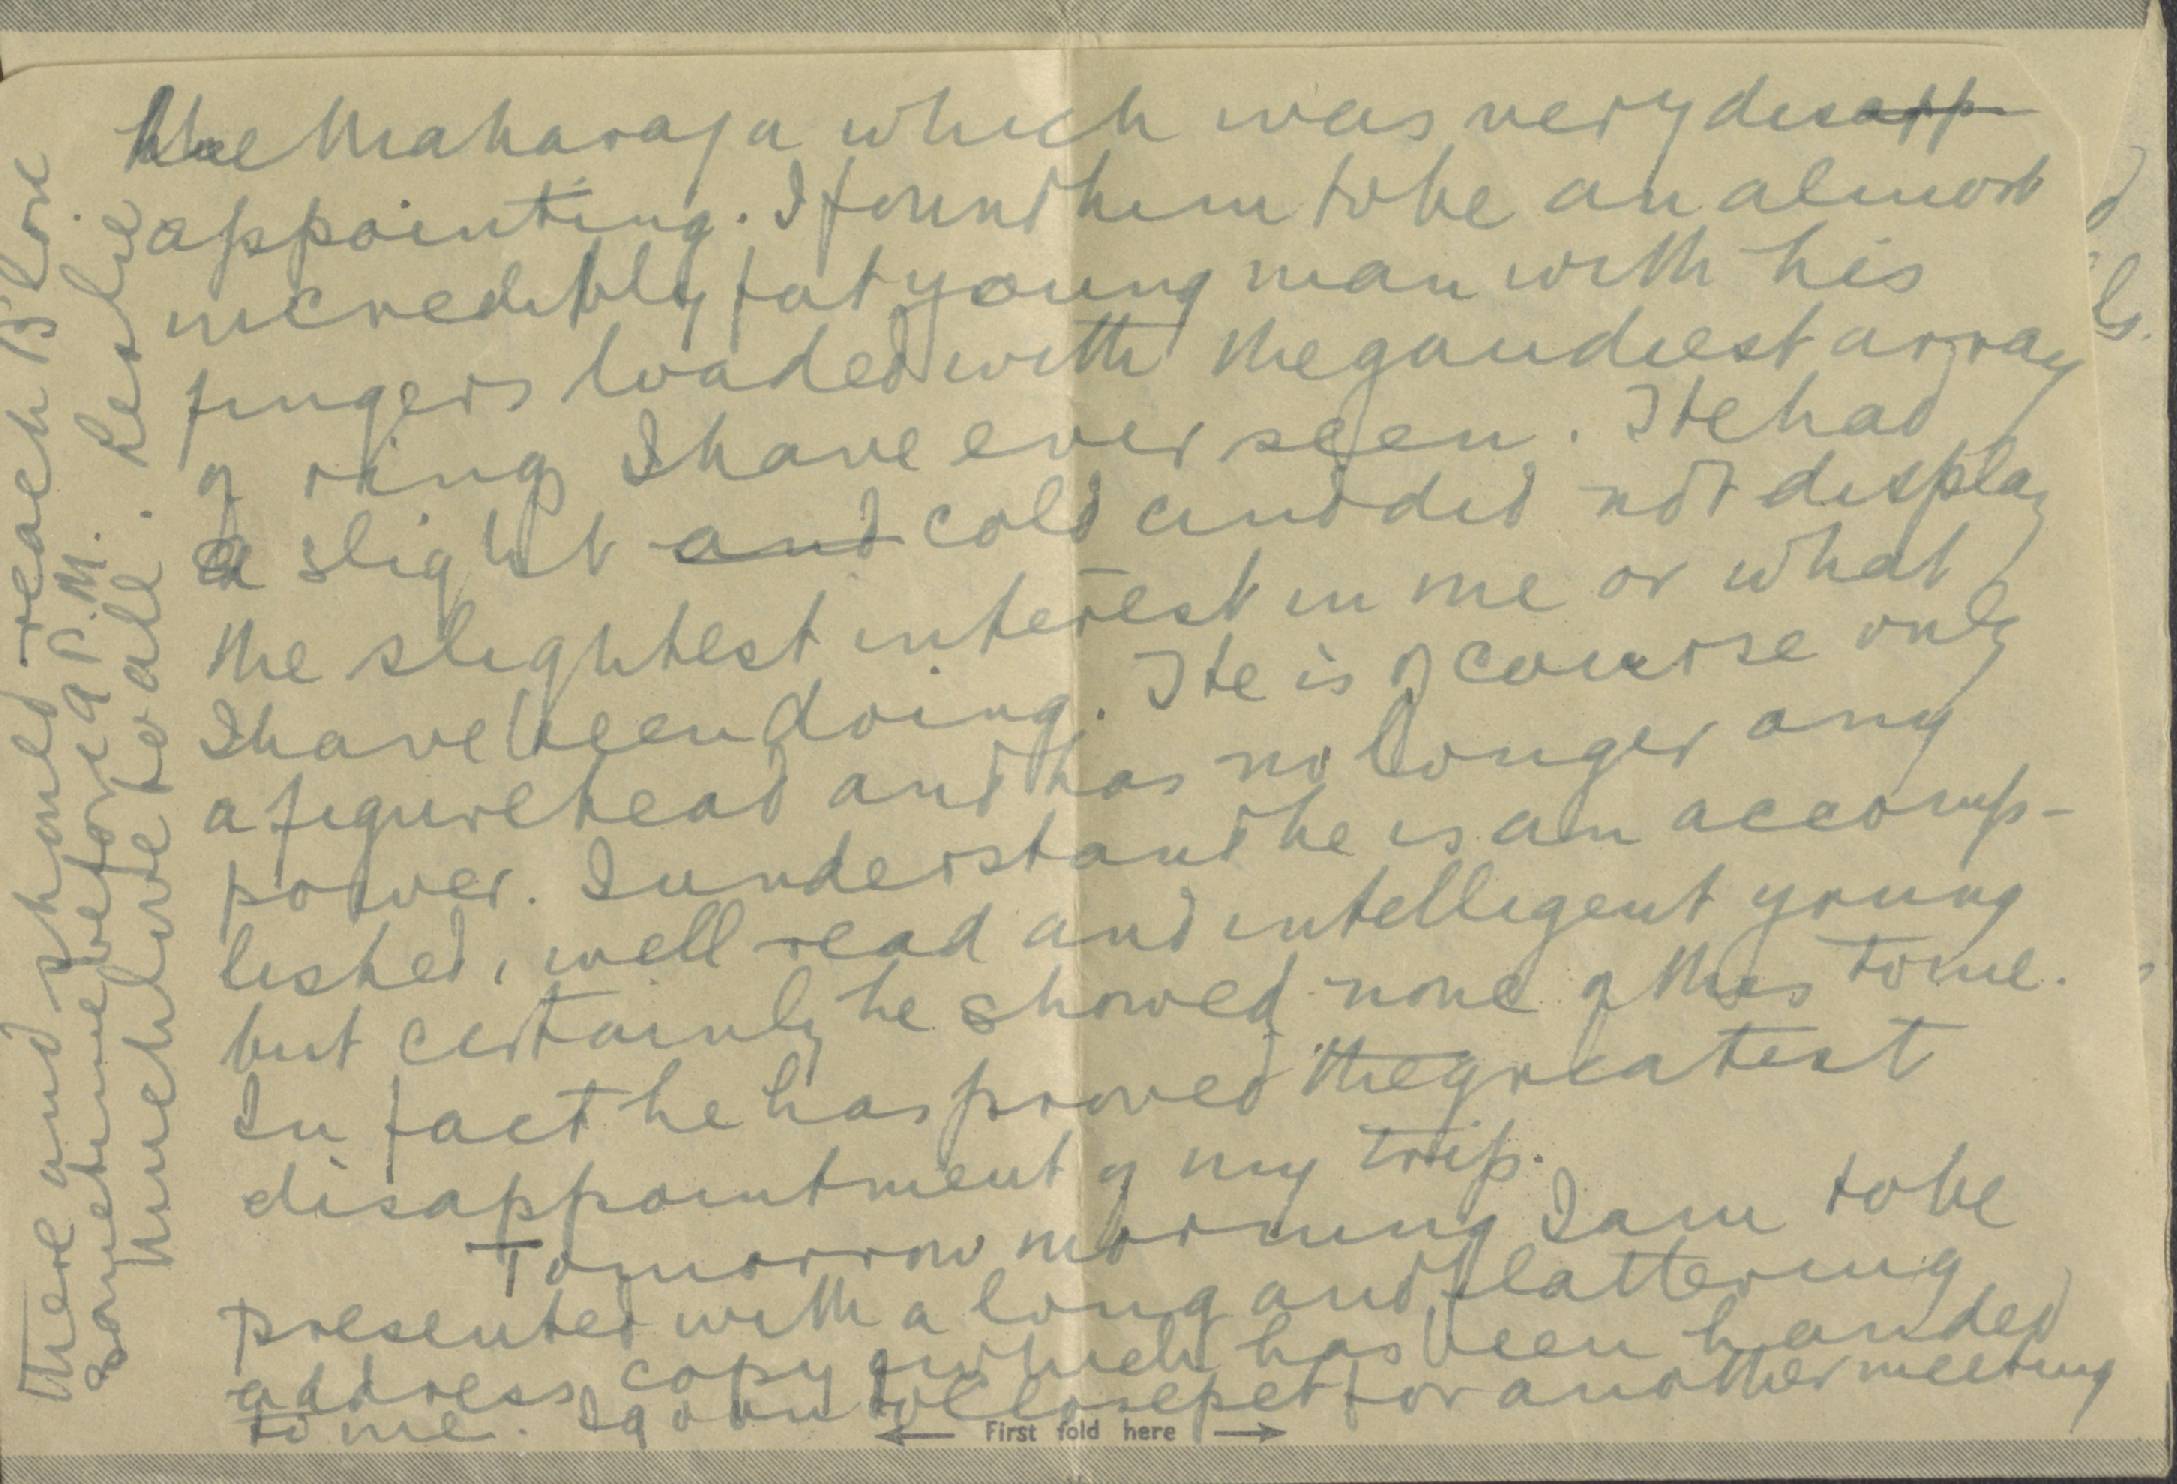 the Maharaja which was very disapp
appointing. I found him to be an almost
incredibly fat young man with his
fingers loaded with the gaudiest array
of ring I have ever seen. He had
a slight and cold and did not display
the slightest interest in me or what
I have been doing. He is of course only
a figurehead and has no longer any
power. I understand he is an accomp-
lished, well read and intelligent young
but certainly he showed none of this to me.
In fact he has proved the greatest
disappointment of my trip.
Tomorrow morning I am to be
presented with a long and flattering
address copy of which has been handed
to me. I go on to for another meeting
there and should reach B'lore
sometime before 9 P.M.
Much love to all. Leslie
First fold here